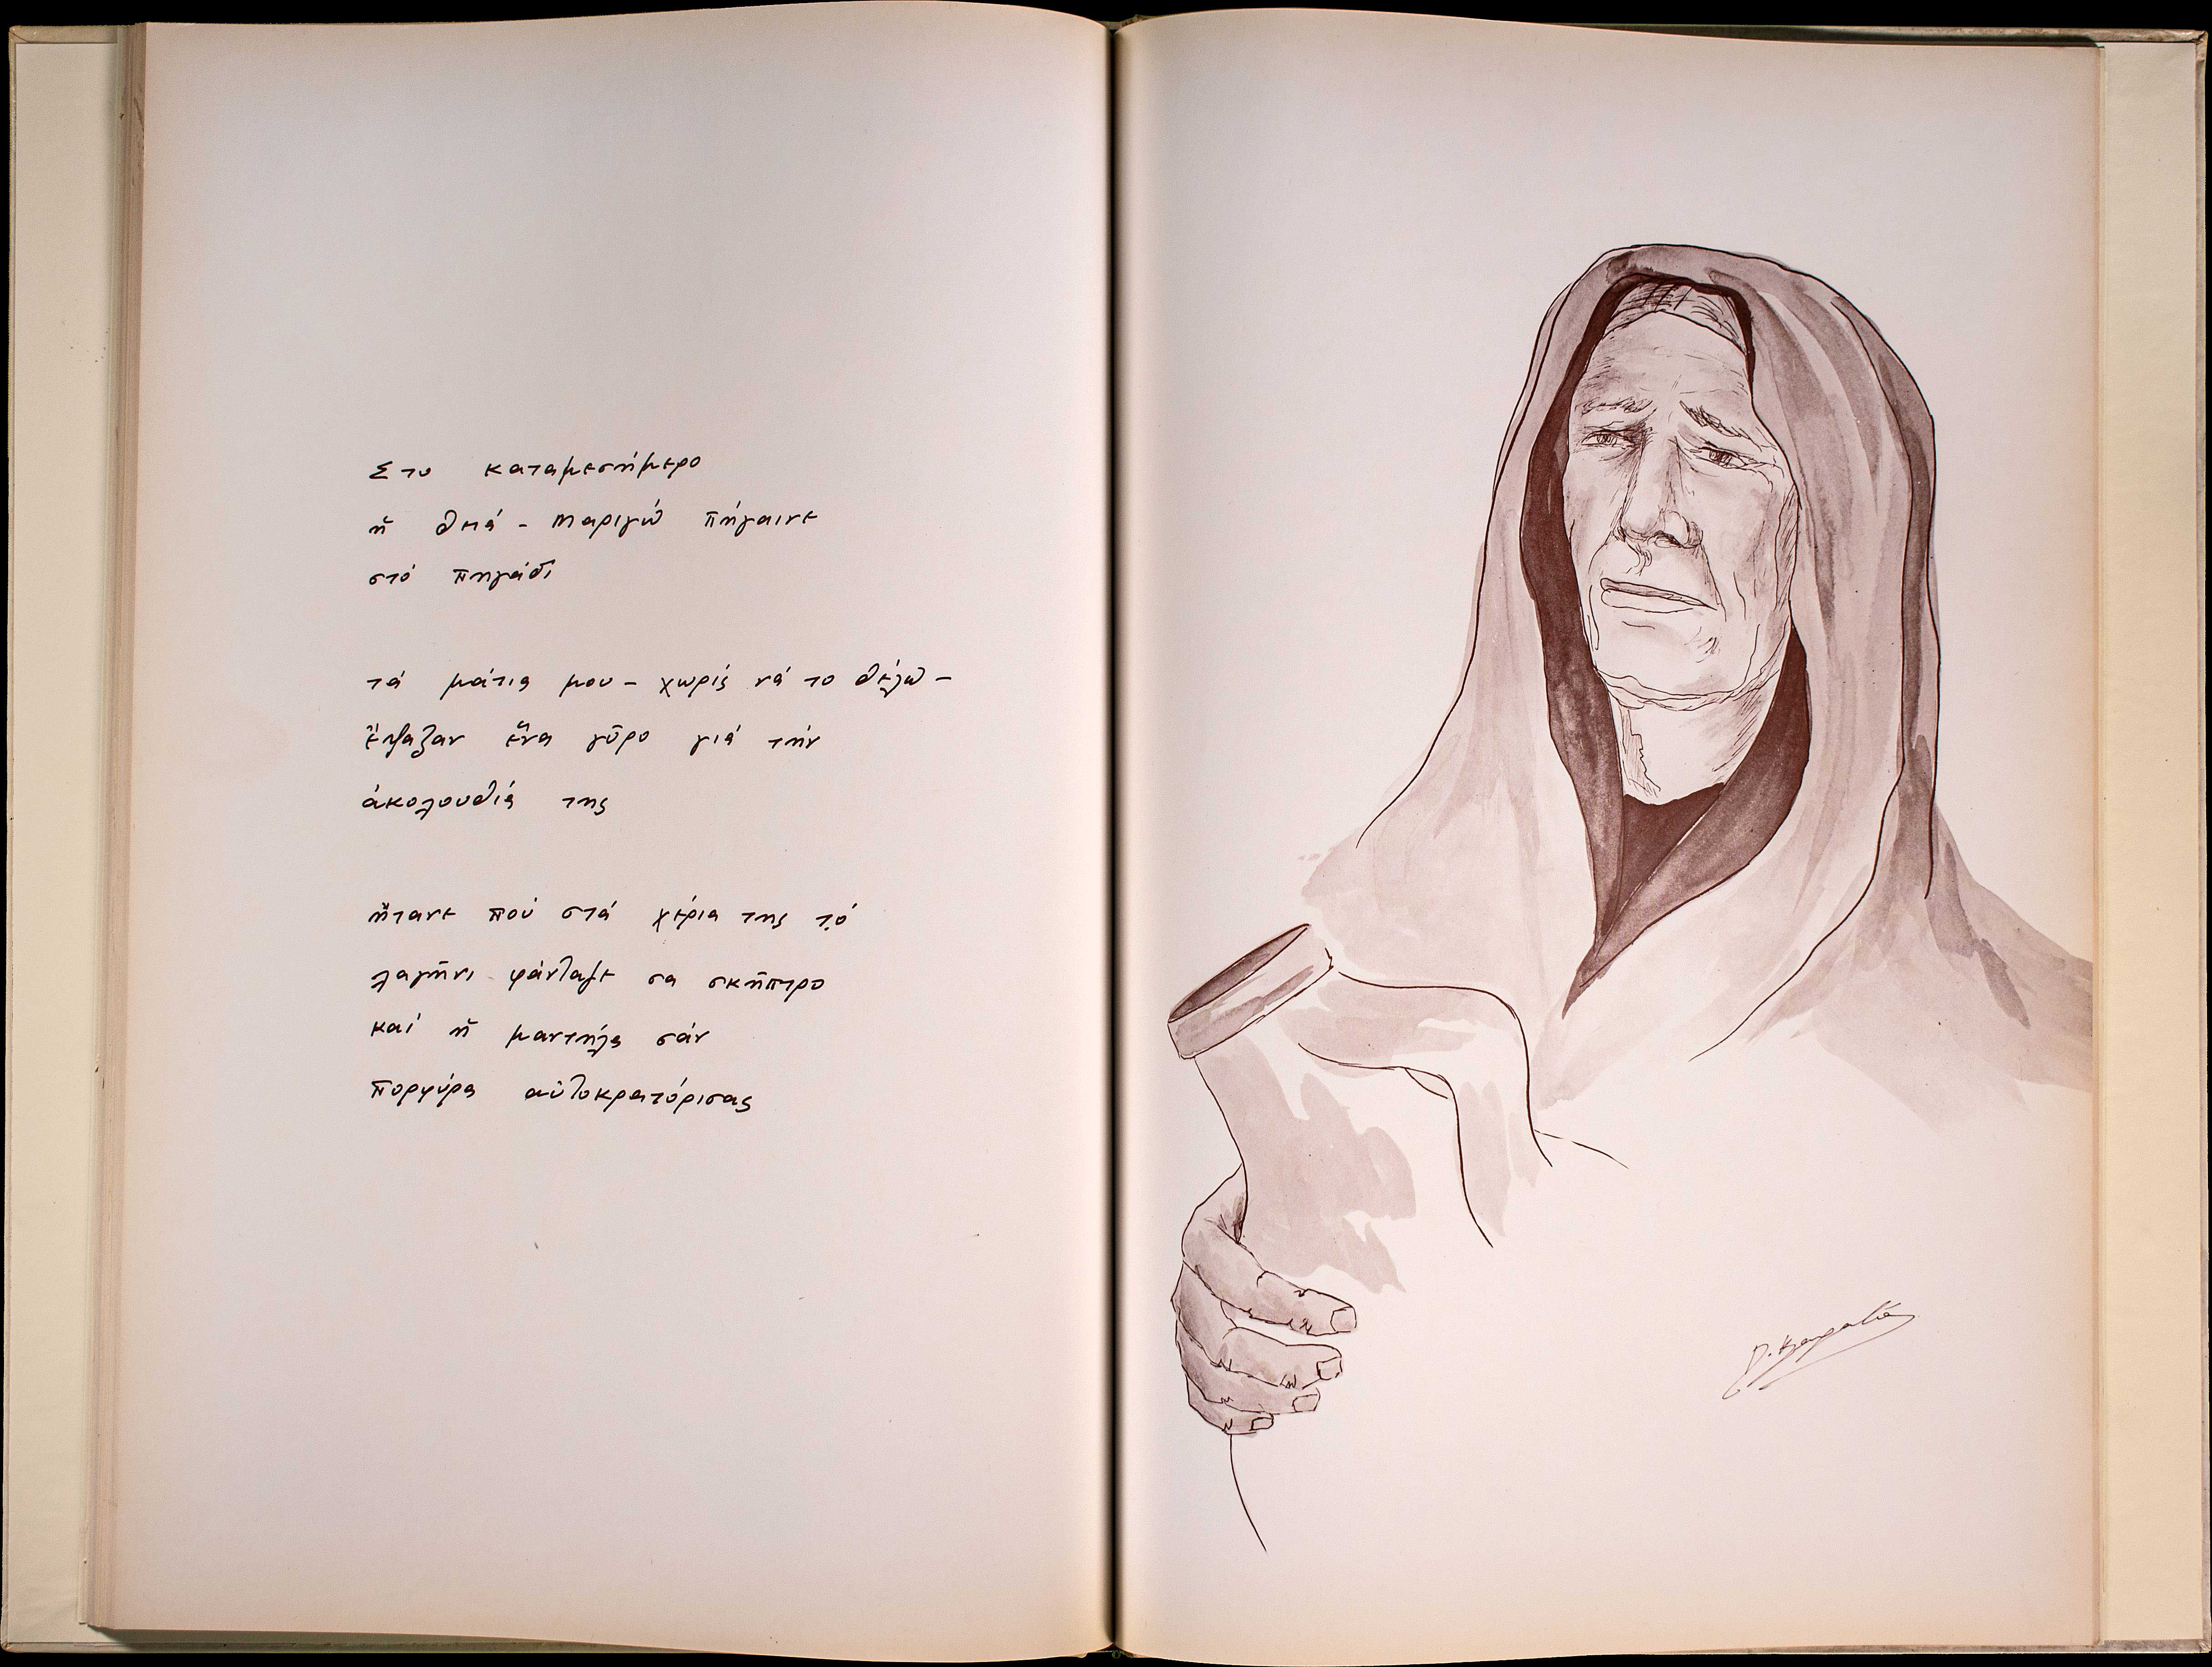 Στο καταμεσήμερο
ἡ θειά - Μαριγώ πήγαινε
στό πηγάδι
τά μάτια μου - χωρίς νά το θέλω -
ἔψαξαν ἕνα γῦρο γιά τήν
ἀκολουθιά της
ἤτανε πού στά χέρια της τό
λαγήνι φάνταζε σα σκῆπτρο
καί ἡ μαντήλα σάν
πορφύρα αὐτοκρατόρισας